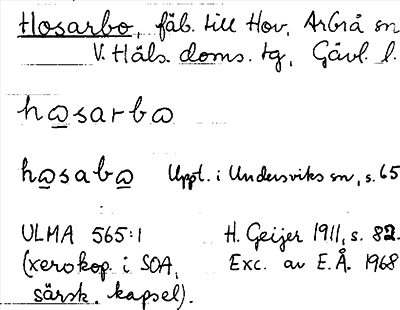 Hosarbo, fäb. till Hov, Arbrå sn
V. Häls. doms. tg, Gävl. l.
hωsarbω
hωsabω Uppt. i Undersviks sn, s. 65
ULMA 565:1 H. Geijer 1911, s. 82.
(xerokop. i SOA, Exc. av E.Å. 1968
särsk. kapsel).